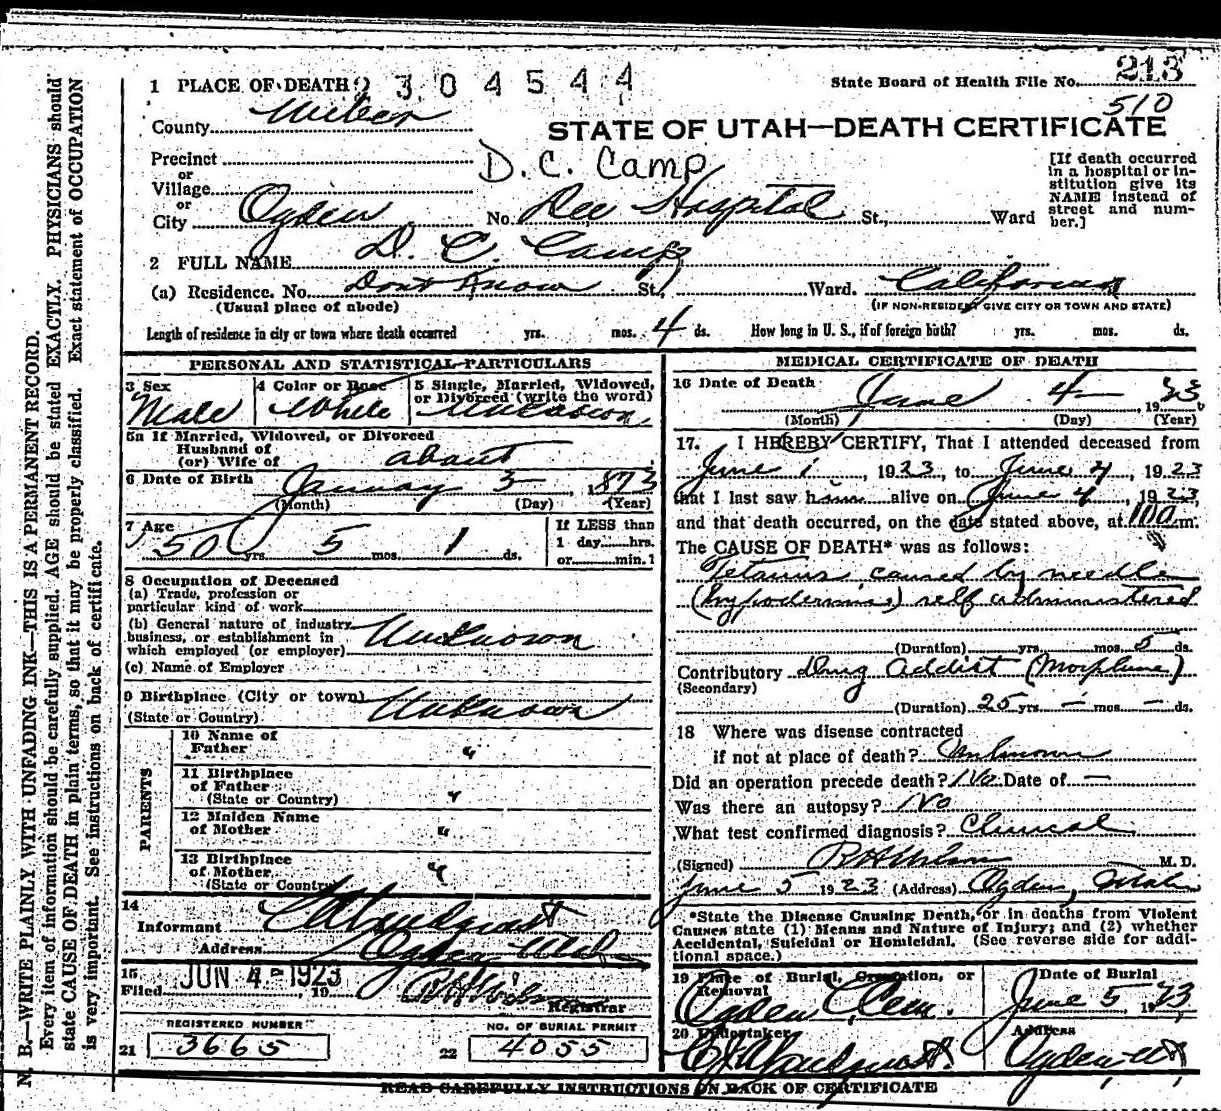 213
State Board of Health File No.
510
1 PLACE OF DEATH 2 3 0 4 5 4 4
County Weber
STATE OF UTAH—DEATH CERTIFICATE
Precinct
or
Village
or
D. C. Camp
[If death occurred in a hospital or in-
stitution give its
NAME instead of
street and num-
ber.]
City Ogden No. Dee Hospital St., Ward
2 FULL NAME D. C. Camp
(a) Residence. No. Dont Know St., Ward. California
(Usual place of abode) (IF NON-RESIDENT GIVE CITY OR TOWN AND STATE)
Length of residence in city or town where death occurred yrs. mos. 4 ds. How long in U. S., if of foreign birth? yrs. mos. ds.
PERSONAL AND STATISTICAL PARTICULARS
3 Sex Male
4 Color or Race White
5 Single, Married, Widowed,
or Divorced (write the word)
Unknown
5a If Married, Widowed, or Divorced
Husband of
(or) Wife of
about
6 Date of Birth January 3 1873
(Month) (Day) (Year)
7 Age
50 yrs. 5 mos. 1 ds.
If LESS than
1 day......hrs.
or......min.?
8 Occupation of Deceased
(a) Trade, profession or
particular kind of work
(b) General nature of industry
business, or establishment in
which employed (or employer) Unknown
(c) Name of Employer
9 Birthplace (City or town)
(State or Country) Unknown
PARENTS
10 Name of
Father "
11 Birthplace
of Father
(State or Country) "
12 Maiden Name
of Mother "
13 Birthplace
of Mother
(State or Country) "
14
Informant
Address Ogden Utah
15
Filed JUN 4 - 1923, 19
Registrar
REGISTERED NUMBER
21 3665
NO. OF BURIAL PERMIT
22 4055
MEDICAL CERTIFICATE OF DEATH
16 Date of Death June 4 1923
(Month) (Day) (Year)
17. I HEREBY CERTIFY, That I attended deceased from
June 1, 1923, to June 4, 1923
that I last saw him alive on June 4, 1923,
and that death occurred, on the date stated above, at 100 m.
The CAUSE OF DEATH* was as follows:
Tetanus caused by needle
(hypodermic) self administered
(Duration) yrs. mos. 5 ds.
Contributory Drug Addict (Morphine)
(Secondary)
(Duration) 25 yrs. — mos. — ds.
18 Where was disease contracted
if not at place of death? Unknown
Did an operation precede death? No Date of —
Was there an autopsy? No
What test confirmed diagnosis? Clinical
(Signed) M. D.
June 5 1923 (Address) Ogden, Utah
*State the Disease Causing Death, or in deaths from Violent
Causes state (1) Means and Nature of Injury; and (2) whether
Accidental, Suicidal or Homicidal. (See reverse side for addi-
tional space.)
19 Place of Burial, Cremation, or
Removal
Ogden Cem.
Date of Burial
June 5, 1923
20 Undertaker
Address
Ogden Ut
READ CAREFULLY INSTRUCTIONS ON BACK OF CERTIFICATE
N. B.—WRITE PLAINLY WITH UNFADING INK—THIS IS A PERMANENT RECORD.
Every item of information should be carefully supplied. AGE should be stated EXACTLY. PHYSICIANS should
state CAUSE OF DEATH in plain terms, so that it may be properly classified. Exact statement of OCCUPATION
is very important. See instructions on back of certificate.